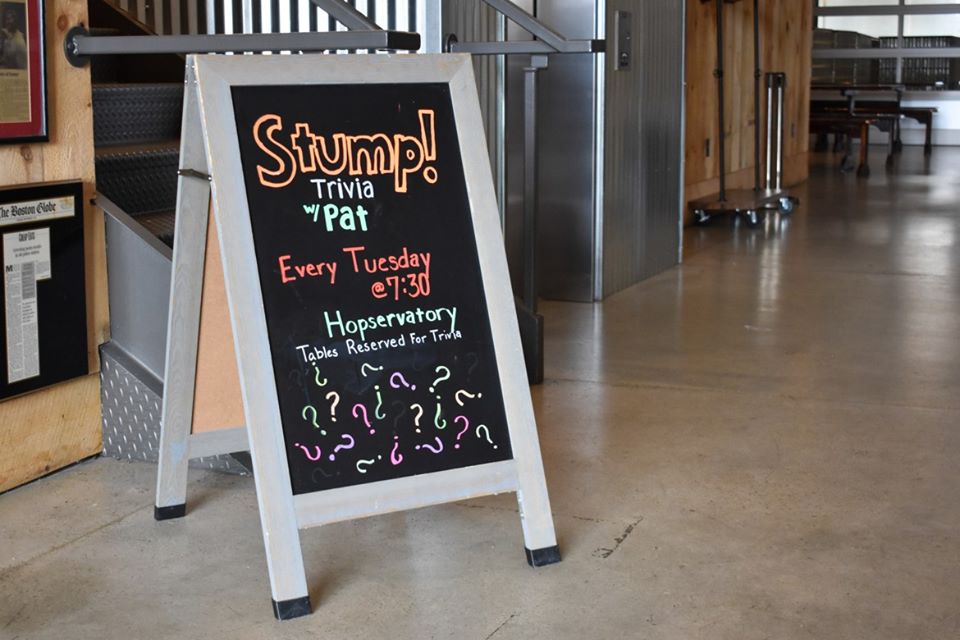 Stump!
Trivia
w/ Pat
Every Tuesday
@7:30
Hopservatory
Tables Reserved For Trivia
? ? ? ? ? ? ? ? ? ? ? ? ? ? ? ? ? ? ? ?
The Boston Globe